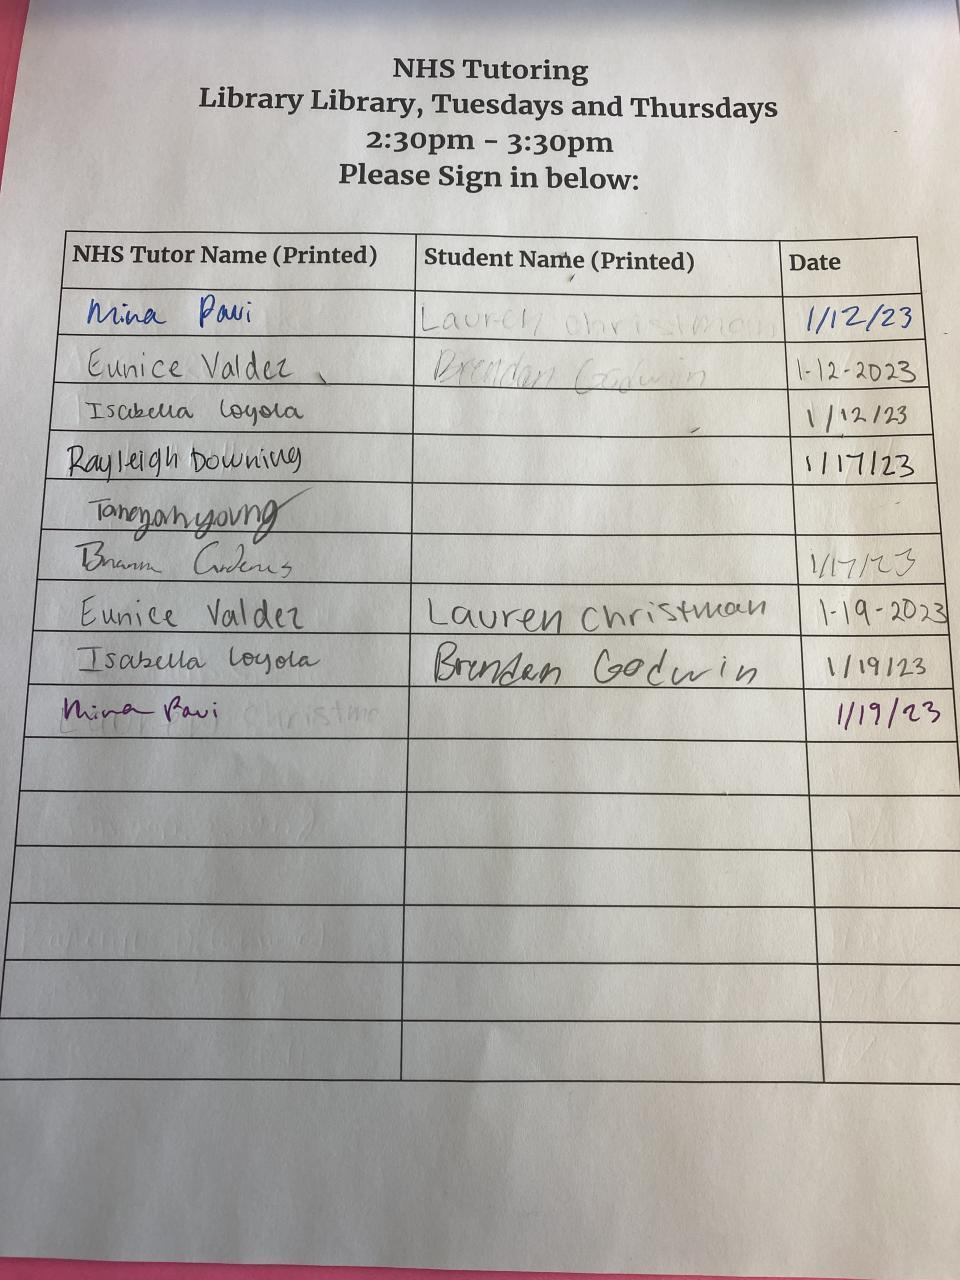 NHS Tutoring
Library Library, Tuesdays and Thursdays
2:30pm - 3:30pm
Please Sign in below:
NHS Tutor Name (Printed) Student Name (Printed) Date
Mina Pavi Lauren Christman 1/12/23
Eunice Valdez Brendan Godwin 1-12-2023
Isabella Loyola 1/12/23
Rayleigh Downing 1/17/23
young
1/17/23
Eunice Valdez Lauren Christman 1-19-2023
Isabella Loyola Brendan Godwin 1/19/23
Mina Pavi 1/19/23